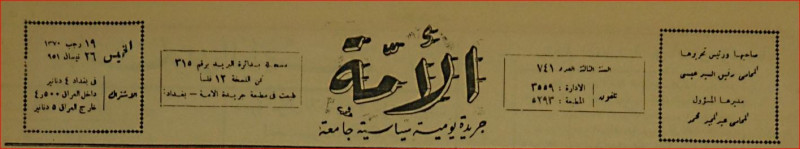 صاحبها ورئيس تحريرها
المحامي رئيس السيد عيسى
مديرها المسؤول
المحامي عبد المجيد محمد
السنة الثالثة العدد ٧٤١
تلفون
الادارة : ٣٥٥٩
المطبعة : ٥٢٩٣
الأمّة
جريدة يومية سياسية جامعة
مسجلة بدائرة البريد برقم ٣١٥
ثمن النسخة ١٢ فلساً
طبعت في مطبعة جريدة الامة – بغداد
الخميس
١٩ رجب ١٣٧٠
٢٦ نيسان ٩٥١
الاشتراك
في بغداد ٤ دنانير
داخل العراق ٤٫٥٠٠
خارج العراق ٥ دنانير